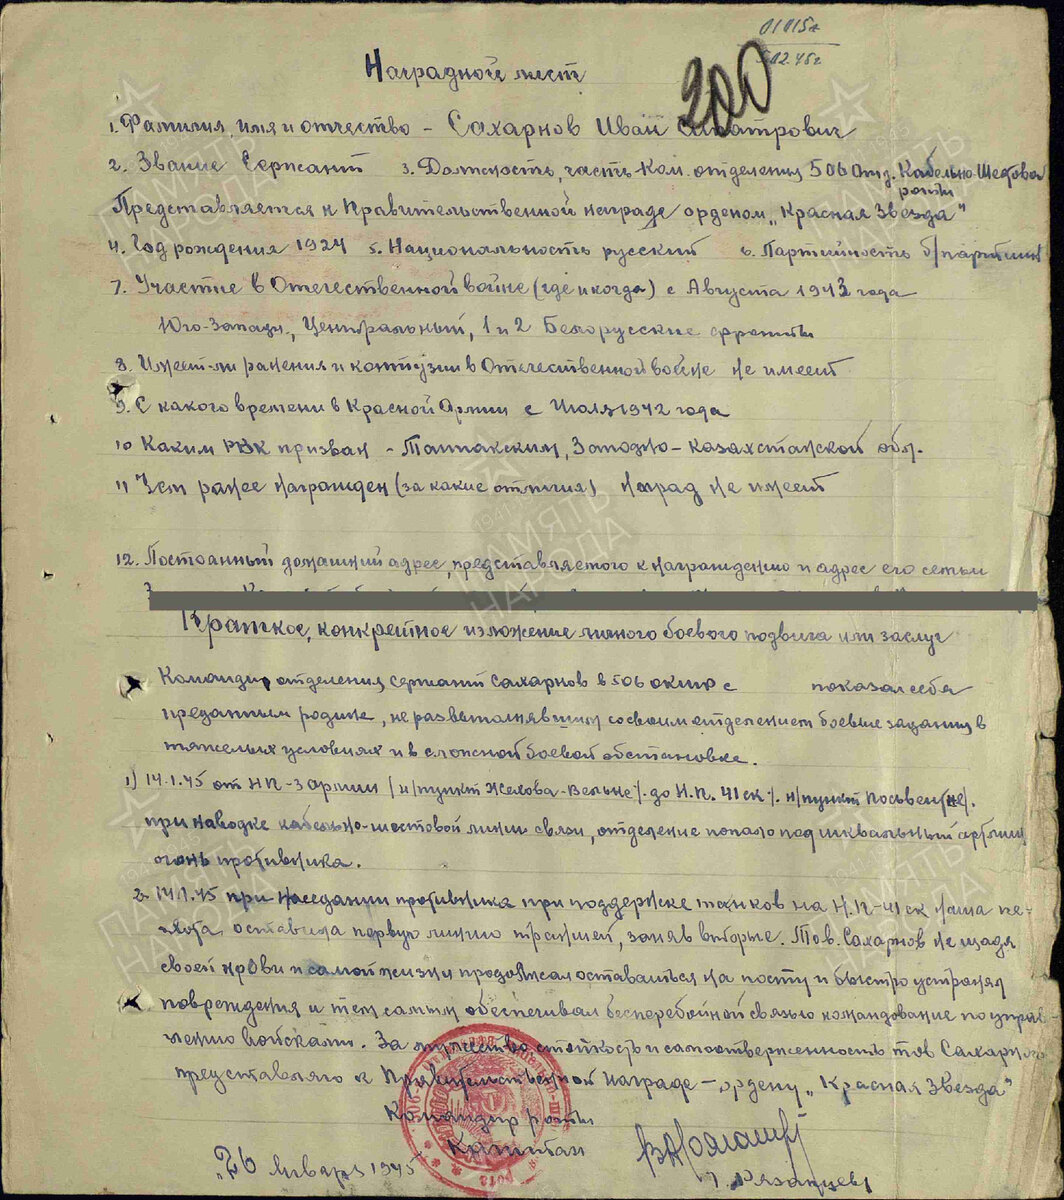 01015
02.45г
200
Наградной лист
1. Фамилия, имя и отчество – Сахарнов Иван
2. Звание Сержант 3. Должность, часть – Ком. отделения 506 Отд. Кабельно-Шестовой
роты
Представляется к Правительственной награде орденом „Красная Звезда"
4. Год рождения 1924 5. Национальность русский 6. Партийность б/партийн
7. Участие в Отечественной войне (где и когда) с Августа 1943 года
Юго-Запад., Центральный, 1 и 2 Белорусские фронты
8. Имеет-ли ранения и контузии в Отечественной войне не имеет
9. С какого времени в Красной Армии с Июля 1942 года
10 Каким РВК призван – Западно – казахстанской обл.
11 Чем ранее награжден (за какие отличия) наград не имеет
12. Постоянный домашний адрес, представляемого к награждению и адрес его семьи
Краткое, конкретное изложение личного боевого подвига или заслуг
Командир отделения сержант Сахарнов в 506 окшр с показал себя
преданным родине, не раз выполнявшим со своим отделением боевые задания в
тяжелых условиях и в сложной боевой обстановке.
1) 14.1.45 от НП – 3 армии /н/пункт Желова-Вельке/. до Н.П. 41 ск/. н/пункт
при наводке кабельно-шестовой линии связи, отделение попало под шквальный артлин
огонь противника.
2. 14.1.45 при наседании противника при поддержке танков на Н.П – 41 ск наша пе-
хота оставила первую линию траншей, заняв вторые. Тов. Сахарнов не щадя
своей крови и самой жизни продолжал оставаться на посту и быстро устранял
повреждения и тем самым обеспечивал бесперебойной связью командование по управ-
лению войсками. За мужество стойкость и самоотверженность тов Сахарнов
представляю к Правительственной награде – ордену „Красная Звезда"
Командир роты
Капитан
/ Рязанцев /
"26 Января 1945
ПАМЯТЬ НАРОДА
1941-1945